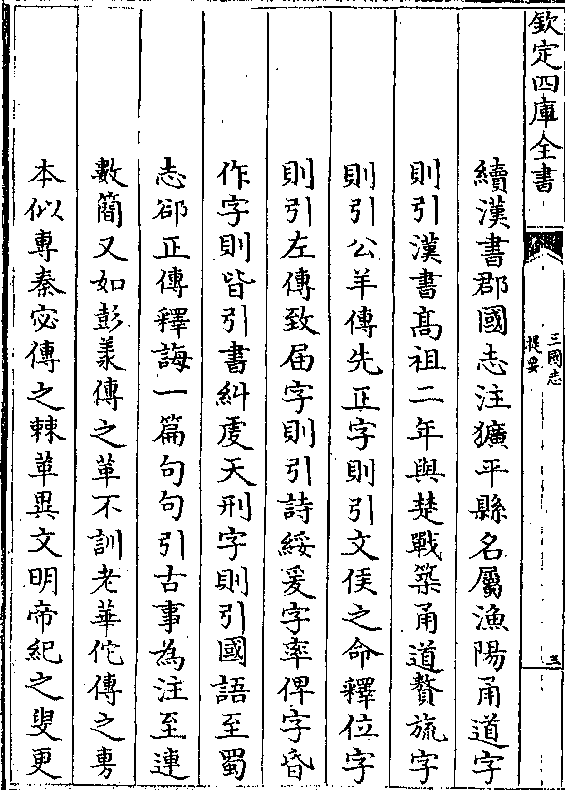 欽定四庫全書
三國志
提要
三
續漢書郡國志注獷平縣名屬漁陽甬道字
則引漢書髙祖二年與楚戰築甬道贅旒字
則引公羊傳先正字則引文侯之命釋位字
則引左傳致届字則引詩綏爰字率俾字昬
作字則皆引書糾虔天刑字則引國語至蜀
志郤正傳釋誨一篇句句引古事為注至連
數簡又如彭羕傳之革不訓老華佗傳之旉
本似專秦宓傳之棘革異文明帝紀之叟更